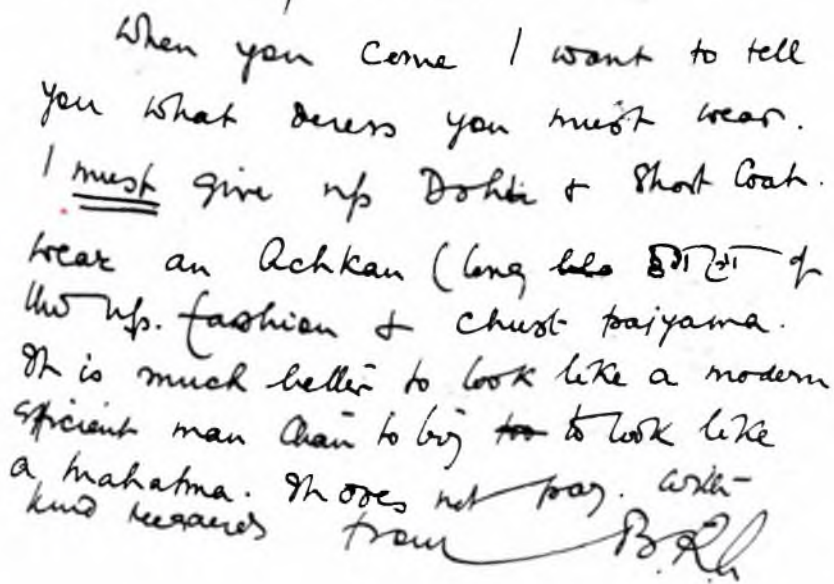 When you come I want to tell
you what dress you must wear.
I must give up Dohti & Short Coat.
Wear an Achkan (long of
the up. fashion & chust paiyama.
It is much better to look like a modern
efficient man than to try to look like
a mahatma. It does not pay. With
kind regards from